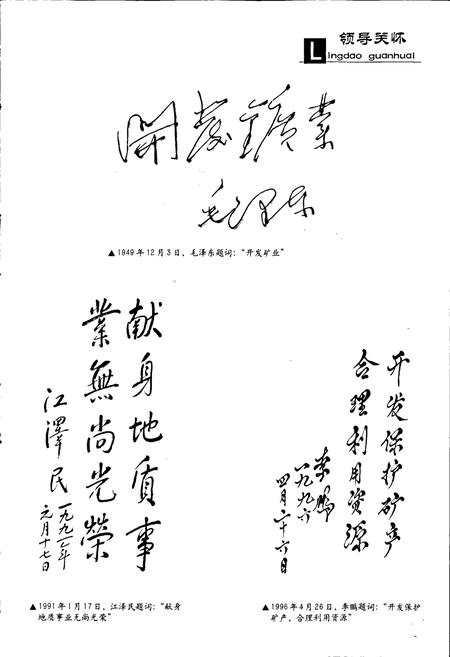 领导关怀
Lingdao guanhuai
開發鑛業
毛泽东
▲1949年12月3日，毛泽东题词：“开发矿业”
献身地质事
業無尚光榮
江澤民
一九九一年
元月十七日
开发保护矿产
合理利用资源
李鹏
一九九六
四月二十六日
▲1991年1月17日，江泽民题词：“献身
地质事业无尚光荣”
▲1996年4月26日，李鹏题词：“开发保护
矿产，合理利用资源”